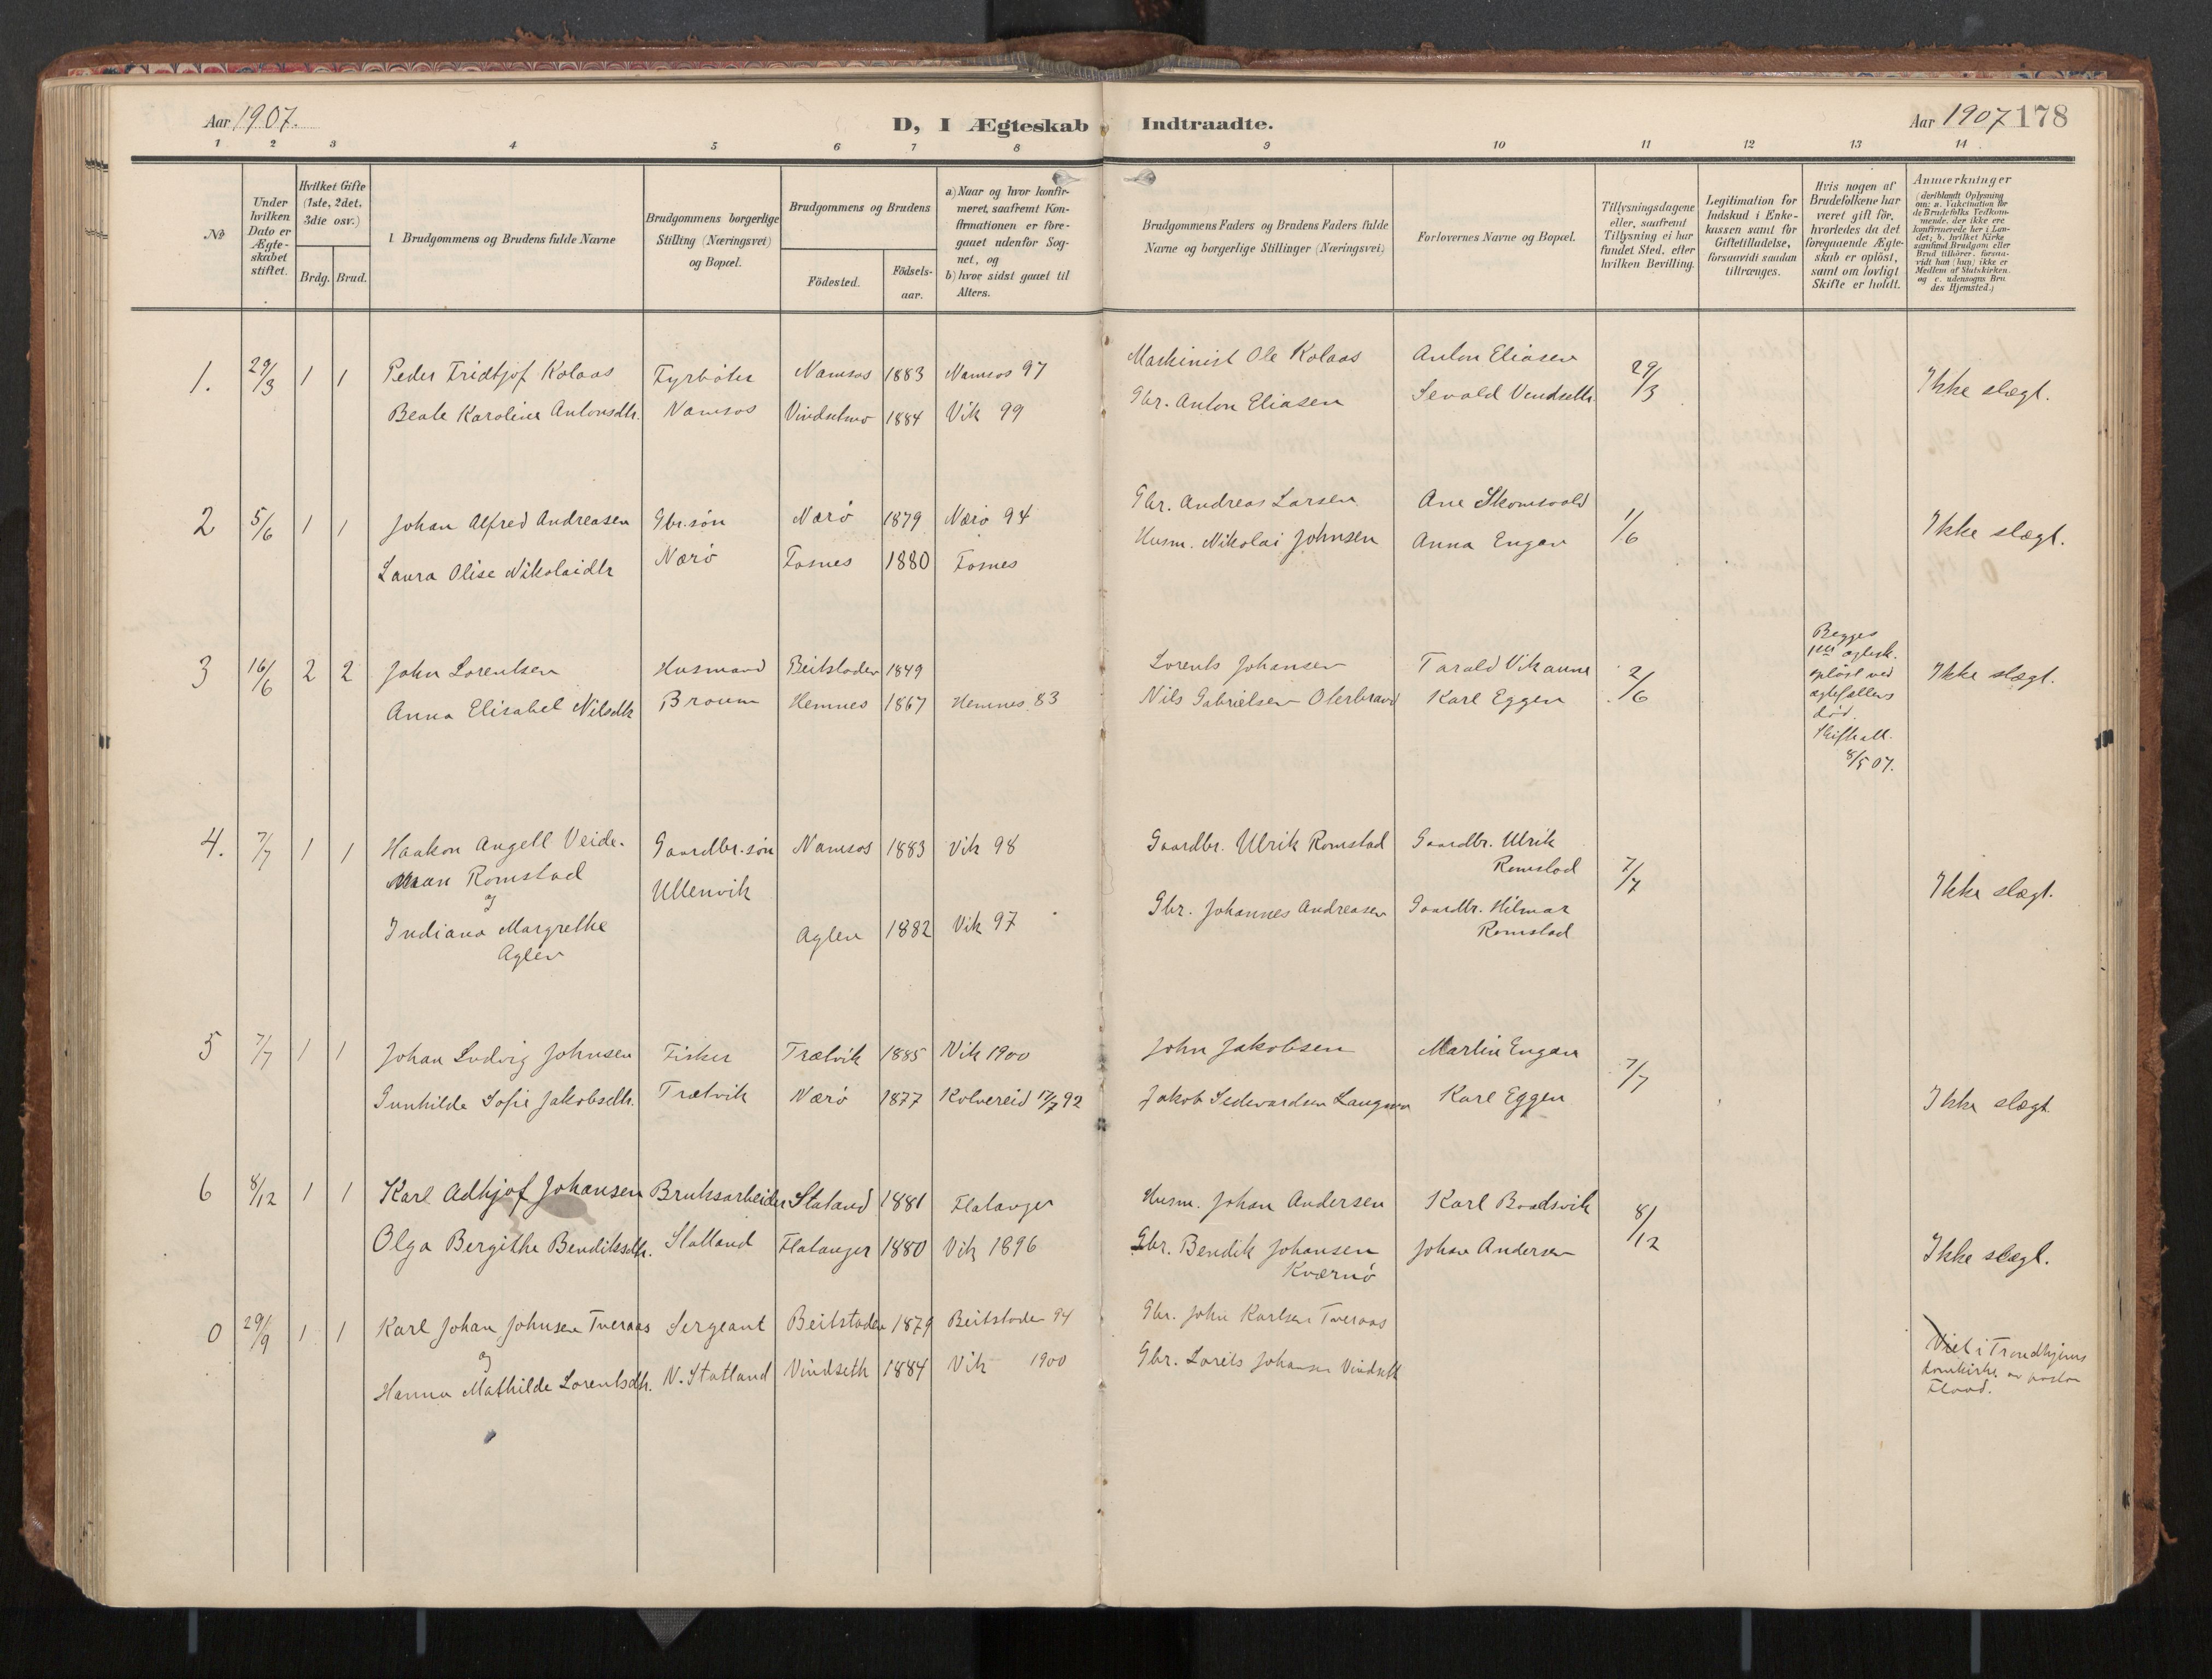 Aar 1907.
D, I Ægteskab Indtraadte.
Aar 1907 178
1 2 3 4 5 6 7 8 9 10 11 12 13 14
№
Under hvilken Dato er Ægteskabet stiftet.
Hvilket Gifte (1ste, 2det, 3die osv.)
Brdg. Brud.
Brudgommens og Brudens fulde Navne
Brudgommens borgerlige Stilling (Næringsvei) og Bopæl.
Brudgommens og Brudens
Födested.
Födselsaar.
a) Naar og hvor konfirmeret, saafremt Konfirmationen er foregaaet udenfor Sognet, og
b) hvor sidst gaaet til Alters.
Brudgommens Faders og Brudens Faders fulde Navne og borgerlige Stillinger (Næringsvei)
Forlovernes Navne og Bopæl.
Tillysningsdagene eller, saafremt Tillysning ei har fundet Sted, efter hvilken Bevilling.
Legitimation for Indskud i Enkekassen samt for Giftetilladelse, forsaavidt saadan tiltrænges.
Hvis nogen af Brudefolkene har været gift för, hvorledes da det foregaaende Ægteskab er oplöst, samt om lovligt Skifte er holdt.
Anmærkninger
(deriblandt Oplysning om: a. Vakcination for de Brudefolks Vedkommende, der ikke ere konfirmerede her i Landet; b. hvilket Kirkesamfund Brudgom eller Brud tilhörer, forsaavidt han (hun) ikke er Medlem af Statskirken og c. udensogns Brudes Hjemsted.)
1. 29/3 1 1 Peder Fridtjof Kolaas Fyrböter Namsos 1883 Namsos 97 Maskinist Ole Kolaas Anton Eliasen 29/3 Ikke slægt.
Beate Karoline Antonsdtr. Namsos Vindsetmo 1884 Vik 99 Gbr. Anton Eliasen Sevald Vendseth
2 5/6 1 1 Johan Alfred Andreasen Gbr.søn Nærö 1879 Nærö 94 Gbr. Andreas Larsen Ane Skomsvold 1/6 Ikke slægt.
Laura Olise Nikolaidtr Nærö Fosnes 1880 Fosnes Husm. Nikolai Johnsen Anna Engan
3 16/6 2 2 John Lorentsen Husmand Beitstaden 1849 Lorents Johansen Tarald Vikaune 2/6 Ikke slægt.
Anna Elisabet Nilsdtr Braum Hemnes 1867 Hemnes 83 Nils Gabrielsen Olerbrand Karl Eggen
Begges
1ste ægtesk.
opløst ved
ægtefællens
død.
Skifteatt.
8/5 07.
4. 7/7 1 1 Haakon Angell Veide- Gaardbr.søn Namsos 1883 Vik 98 Gaardbr. Ulrik Romstad Gaardbr. Ulrik
maan Romstad Ullenvik Romstad 7/7 Ikke slægt.
og
Indiana Margrethe Aglen 1882 Vik 97 Gbr. Johannes Andreasen Gaardbr. Hilmar
Aglen Romstad
5 7/7 1 1 Johan Ludvig Johnsen Fisker Trætvik 1885 Vik 1900 John Jakobsen Martin Engan 7/7
Gunhilde Sofie Jakobsdtr. Trætvik Nærö 1877 Kolvereid 17/7 92 Jakob Sedevardsen Karl Eggen Ikke slægt
6 8/12 1 1 Karl Adthjof Johansen Bruksarbeider Statand 1881 Flatanger Husm. Johan Andersen Karl Baadsvik 8/12
Olga Bergithe Bendiksdtr. Statland Flatanger 1880 Vik 1896 Gbr. Bendik Johansen Johan Andersen Ikke slægt.
Kværnö
0 29/9 1 1 Karl Johan Johnsen Tveraas Sergeant Beitstaden 1879 Beitstaden 94 Gbr. John Karlsen Tveraas
og
Hanna Mathilde Lorentsdtr. N. Statland Vindseth 1884 Vik 1900 Gbr. Lorits Johansen Vindseth
Viet i Trondhjems
domkirke av pastor
Flood.